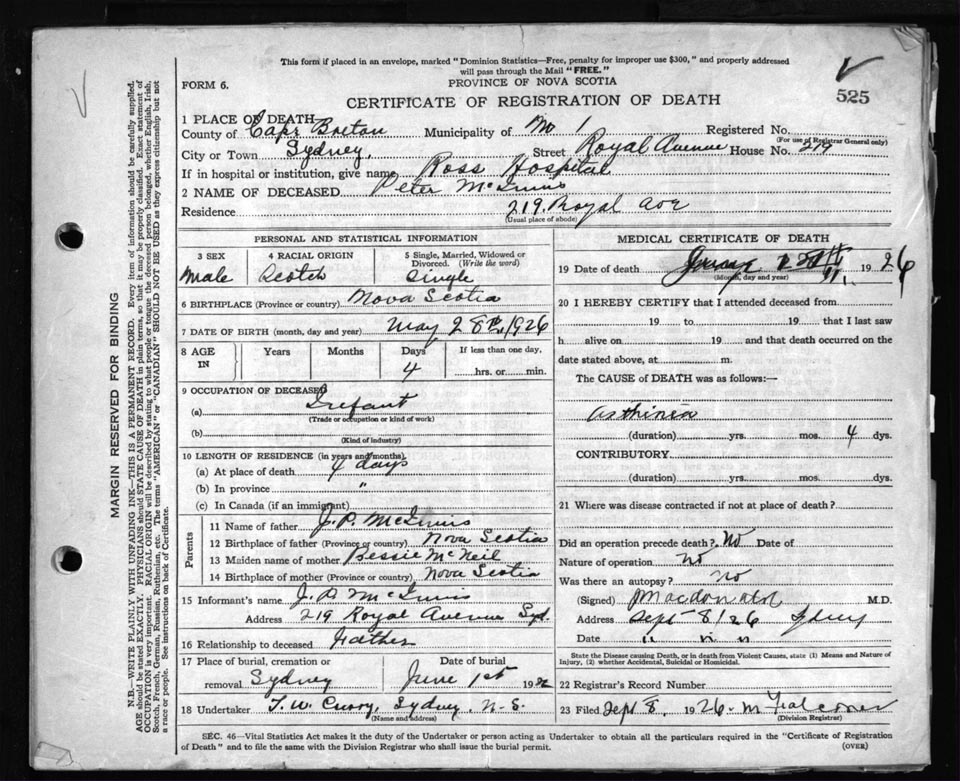 This form if placed in an envelope, marked "Dominion Statistics—Free, penalty for improper use $300," and properly addressed
will pass through the Mail "FREE."
FORM 6.
PROVINCE OF NOVA SCOTIA
525
CERTIFICATE OF REGISTRATION OF DEATH
1 PLACE OF DEATH
County of Cape Breton Municipality of No 1 Registered No.
(For use of Registrar General only)
City or Town Sydney, Street Royal Avenue House No. 219
If in hospital or institution, give name Ross Hospital
2 NAME OF DECEASED Peter McInnis
Residence 219 Royal Ave
(Usual place of abode)
PERSONAL AND STATISTICAL INFORMATION
3 SEX 4 RACIAL ORIGIN 5 Single, Married, Widowed or Divorced. (Write the word)
Male Scotch Single
6 BIRTHPLACE (Province or country) Nova Scotia
7 DATE OF BIRTH (month, day and year) May 28th, 1926
8 AGE IN Years Months Days If less than one day,
4 hrs. or min.
9 OCCUPATION OF DECEASED
(a) Infant
(Trade or occupation or kind of work)
(b)
(Kind of industry)
10 LENGTH OF RESIDENCE (in years and months)
(a) At place of death 4 days
(b) In province "
(c) In Canada (if an immigrant)
Parents
11 Name of father J. P. McInnis
12 Birthplace of father (Province or country) Nova Scotia
13 Maiden name of mother Bessie McNeil
14 Birthplace of mother (Province or country) Nova Scotia
15 Informant's name J. P. McInnis
Address 219 Royal Avenue Syd.
16 Relationship to deceased Father
17 Place of burial, cremation or removal Sydney
Date of burial June 1st 192
18 Undertaker T. W. Curry, Sydney, N. S.
(Name and address)
MEDICAL CERTIFICATE OF DEATH
19 Date of death 1926
(Month, day and year)
20 I HEREBY CERTIFY that I attended deceased from
19 to 19 that I last saw
h alive on 19 and that death occurred on the
date stated above, at m.
The CAUSE of DEATH was as follows:—
Asthinia
(duration) yrs. mos. 4 dys.
CONTRIBUTORY
(duration) yrs. mos. dys.
21 Where was disease contracted if not at place of death?
Did an operation precede death? No Date of
Nature of operation no
Was there an autopsy? no
(Signed) Macdonald M.D.
Address Sept 8/26 Sydney
Date " " "
State the Disease causing Death, or in death from Violent Causes, state (1) Means and Nature of
Injury, (2) whether Accidental, Suicidal or Homicidal.
22 Registrar's Record Number
23 Filed Sept 8, 1926 M Falconer
(Division Registrar)
SEC. 46—Vital Statistics Act makes it the duty of the Undertaker or person acting as Undertaker to obtain all the particulars required in the "Certificate of Registration
of Death" and to file the same with the Division Registrar who shall issue the burial permit.
(OVER)
MARGIN RESERVED FOR BINDING
N.B.—WRITE PLAINLY WITH UNFADING INK—THIS IS A PERMANENT RECORD. Every item of information should be carefully supplied.
AGE should be stated EXACTLY. PHYSICIANS should STATE CAUSE OF DEATH in plain terms, so that it may be properly classified. Exact statement of
OCCUPATION is very important. RACIAL ORIGIN will be described by stating to what people or tongue the deceased person belonged, whether English, Irish,
Scotch, French, German, Russian, Ruthenian, etc. The terms "AMERICAN" or "CANADIAN" SHOULD NOT BE USED as they express citizenship but not
a race or people. See instructions on back of Certificate.